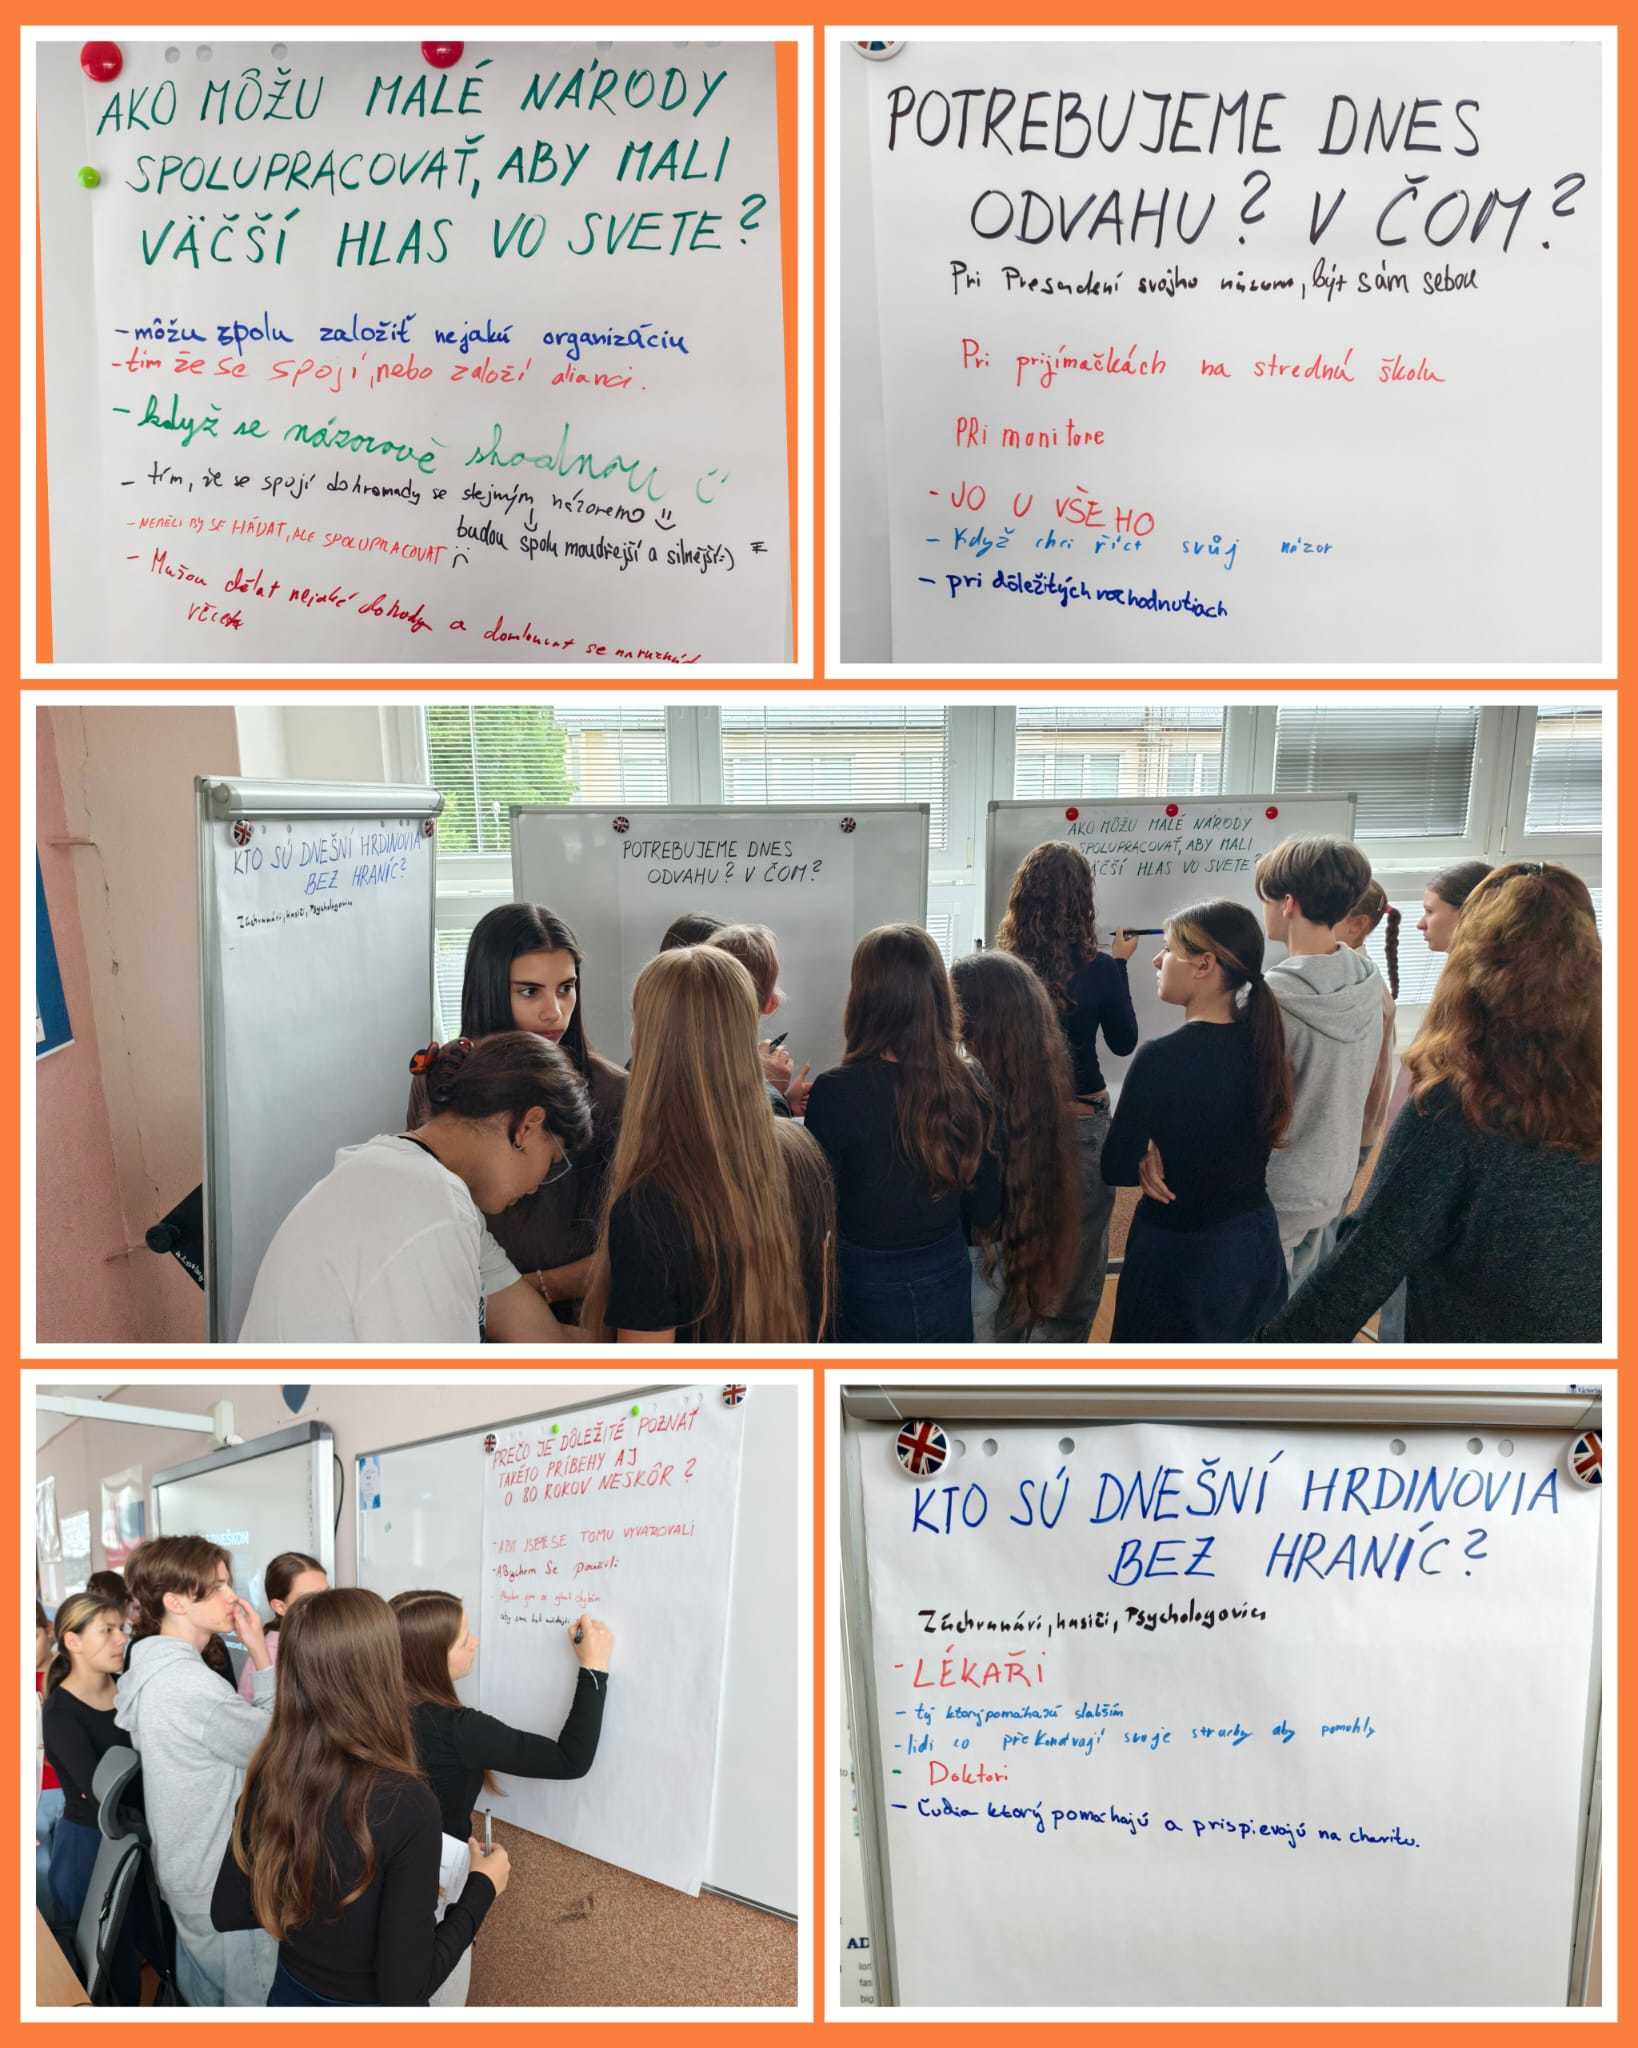 AKO MÔŽU MALÉ NÁRODY
SPOLUPRACOVAŤ, ABY MALI
VÄČŠÍ HLAS VO SVETE?
-môžu spolu založiť nejakú organizáciu
-tím že se spojí, nebo založí alianci.
- když se názorově shodnou
- tím, že se spojí dohromady se stejným názorem
budou spolu moudřejší a silnější:)
- NEMĚLI BY SE HÁDAT, ALE SPOLUPRACOVAT
- Mušou dělat nejaké dohody a domlouvat se na
POTREBUJEME DNES
ODVAHU? V ČOM?
Pri svojho názoru, být sám sebou
Pri prijímačkách na strednú školu
PRi monitore
- JO U VŠEHO
- Když chci říct svůj názor
- pri dôležitých rozhodnutiach
KTO SÚ DNEŠNÍ HRDINOVIA
BEZ HRANÍC?
Záchranári, hasiči, Psychologovia
POTREBUJEME DNES
ODVAHU? V ČOM?
AKO MÔŽU MALÉ NÁRODY
SPOLUPRACOVAŤ, ABY MALI
VÄČŠÍ HLAS VO SVETE?
PREČO JE DÔLEŽITÉ POZNAŤ
TAKÉTO PRÍBEHY AJ
O 80 ROKOV NESKÔR?
-ABY JSME SE TOMU VYVAROVALI
-ABychom se poučili
aby sme boli
KTO SÚ DNEŠNÍ HRDINOVIA
BEZ HRANÍC?
Záchranári, hasiči, Psychologovia
- LÉKAŘI
- tý ktorý pomáhajú slabším
- lidi co překonávají svoje strachy aby pomohly
- Doktori
- Ľudia ktorý pomáhajú a prispievajú na charitu.